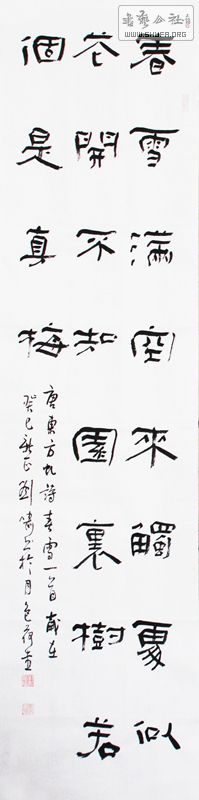 書藝公社
春雪滿空來觸處似
花開不知園裏樹若
個是真梅
唐東方虬詩春雪一首歲在
癸巳新正劉於月色荷